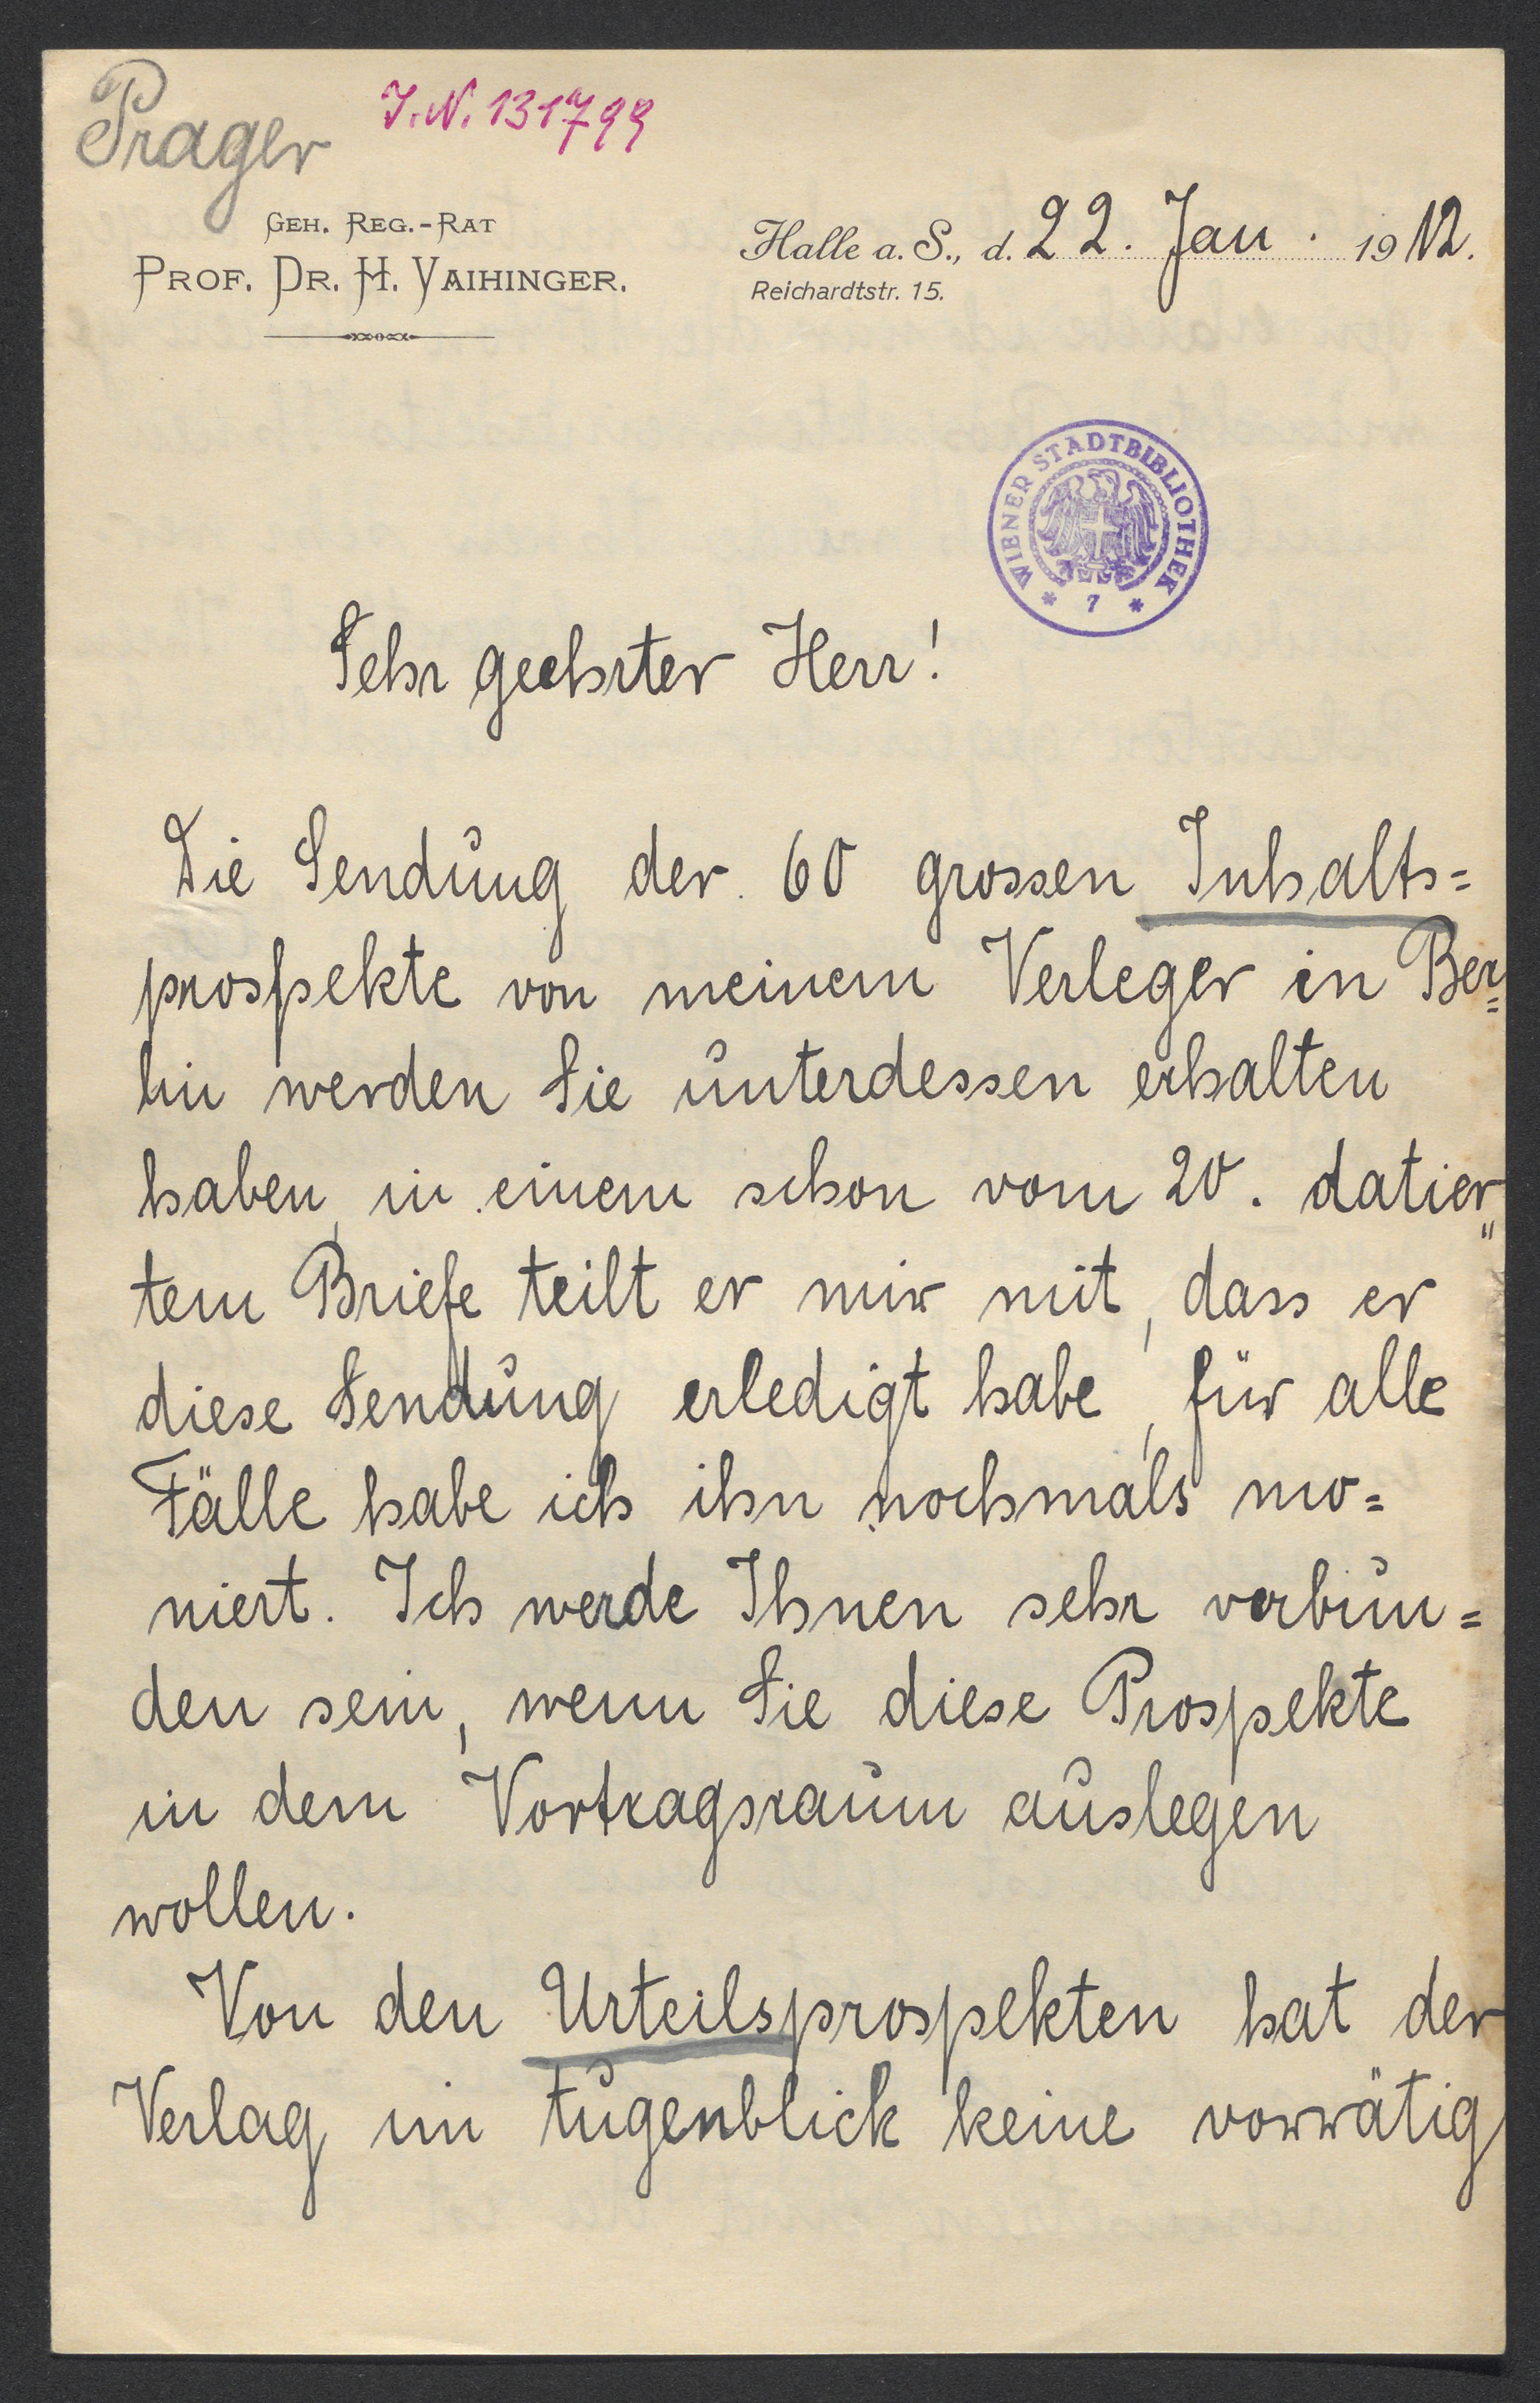 Prager
J.N. 131799
GEH. REG.-RAT
PROF. DR. H. VAIHINGER.
Halle a. S., d. 22. Jan. 1912.
Reichardtstr. 15.
WIENER STADTBIBLIOTHEK
* 7 *
Sehr geehrter Herr!
Die Sendung der 60 grossen Inhalts=
prospekte von meinem Verleger in Ber=
lin werden Sie unterdessen erhalten
haben, in einem schon vom 20. datier"
tem Briefe teilt er mir mit, dass er
diese Sendung erledigt habe, für alle
Fälle habe ich ihn nochmals mo=
niert. Ich werde Ihnen sehr verbun=
den sein, wenn Sie diese Prospekte
in dem Vortragsraum auslegen
wollen.
Von den Urteilsprospekten hat der
Verlag im Augenblick keine vorrätig